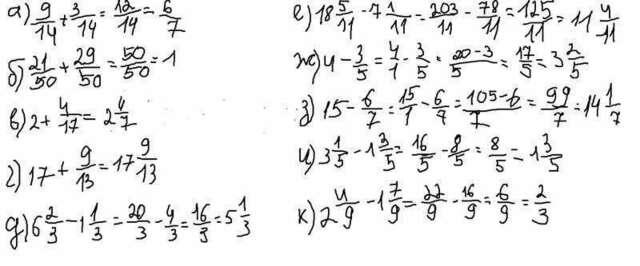 а) 9/14 + 3/14 = 12/14 = 6/7
б) 21/50 + 29/50 = 50/50 = 1
в) 2 + 4/17 = 2 4/7
г) 17 + 9/13 = 17 9/13
д) 6 2/3 - 1 1/3 = 20/3 - 4/3 = 16/3 = 5 1/3
е) 18 5/11 - 7 1/11 = 203/11 - 78/11 = 125/11 = 11 4/11
ж) 4 - 3/5 = 4/1 - 3/5 = 20-3/5 = 17/5 = 3 2/5
з) 15 - 6/7 = 15/1 - 6/7 = 105-6/7 = 99/7 = 14 1/7
и) 3 1/5 - 1 3/5 = 16/5 - 8/5 = 8/5 = 1 3/5
к) 2 4/9 - 1 7/9 = 22/9 - 16/9 = 6/9 = 2/3